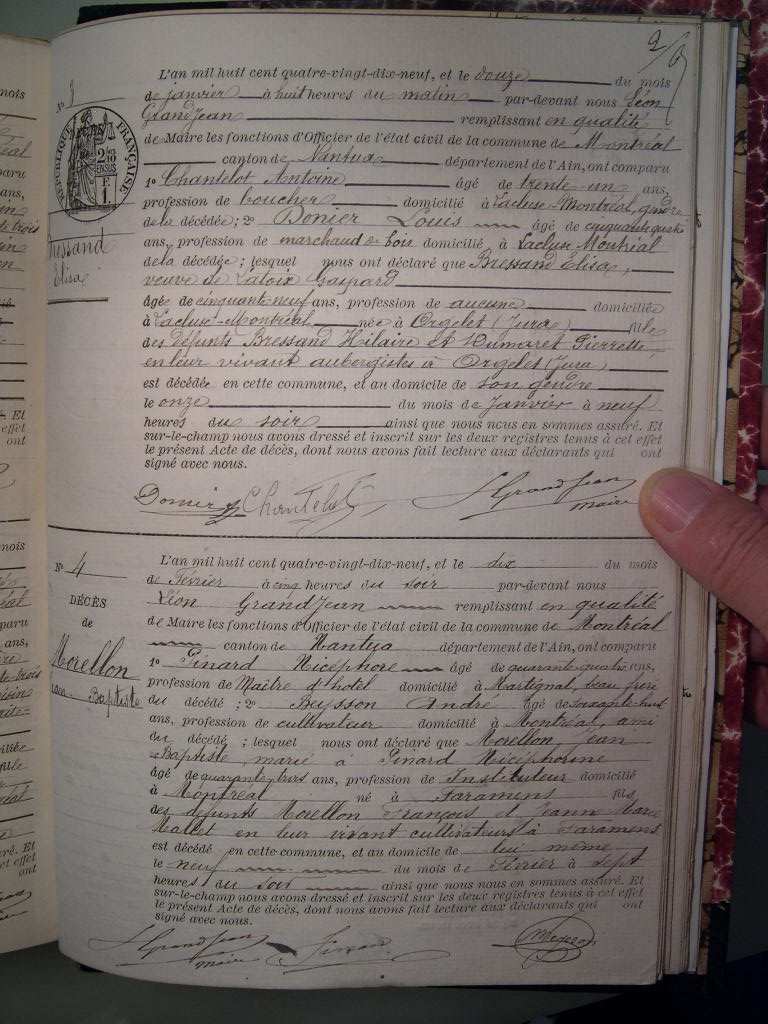 2/6
N° 3
L'an mil huit cent quatre-vingt-dix-neuf, et le douze du mois
de janvier à huit heures du matin par-devant nous Léon
GrandJean remplissant en qualité
de Maire les fonctions d'Officier de l'état civil de la commune de Montréal
canton de Nantua département de l'Ain, ont comparu
1° Chantelot Antoine âgé de trente-un ans,
profession de boucher domicilié à Lacluse-Montréal, gendre
de la décédée; 2° Donier Louis âgé de cinquante
ans, profession de marchand de bois domicilié, à Lacluse Montréal
de la décédée; lesquel nous ont déclaré que Bressand Elisa,
veuve de Gaspard
âgé de cinquante neuf ans, profession de aucune domiciliée
à Lacluse-Montréal née à Orgelet (Jura) fille
des défunts Bressand Hilaire et Humaret Pierrette,
en leur vivant aubergistes à Orgelet (Jura)
est décédée en cette commune, et au domicile de son gendre
le onze du mois de Janvier à neuf
heures du soir ainsi que nous nous en sommes assuré. Et
sur-le-champ nous avons dressé et inscrit sur les deux registres tenus à cet effet
le présent Acte de décès, dont nous avons fait lecture aux déclarants qui ont
signé avec nous.
RÉPUBLIQUE FRANÇAISE
Bressand
Elisa
Donier Chantelot L GrandJean
maire
N° 4
DÉCÈS
de
Morellon
Jean Baptiste
L'an mil huit cent quatre-vingt-dix-neuf, et le dix du mois
de Février à cinq heures du soir par-devant nous
Léon GrandJean remplissant en qualité
de Maire les fonctions d'Officier de l'état civil de la commune de Montréal
canton de Nantua département de l'Ain, ont comparu
1° Ginard Nicéphore âgé de quarante-quatre ans,
profession de Maître d'hôtel domicilié à Martignat, beau frère
du décédé; 2° Buysson André âgé de soixante-huit
ans, profession de cultivateur domicilié à Montréal, ami
du décédé; lesquel nous ont déclaré que Morellon, Jean
Baptiste, marié à Ginard Nicéphorine
âgé de quarante trois ans, profession de Instituteur domicilié
à Montréal né à Faramans fils
des défunts Morellon François et Jeann Marie
Mallet en leur vivant cultivateurs à Faramans
est décédé en cette commune, et au domicile de lui même
le neuf du mois de Février à sept
heures du soir ainsi que nous nous en sommes assuré. Et
sur-le-champ nous avons dressé et inscrit sur les deux registres tenus à cet effet
le présent Acte de décès, dont nous avons fait lecture aux déclarants qui ont
signé avec nous.
L GrandJean
maire